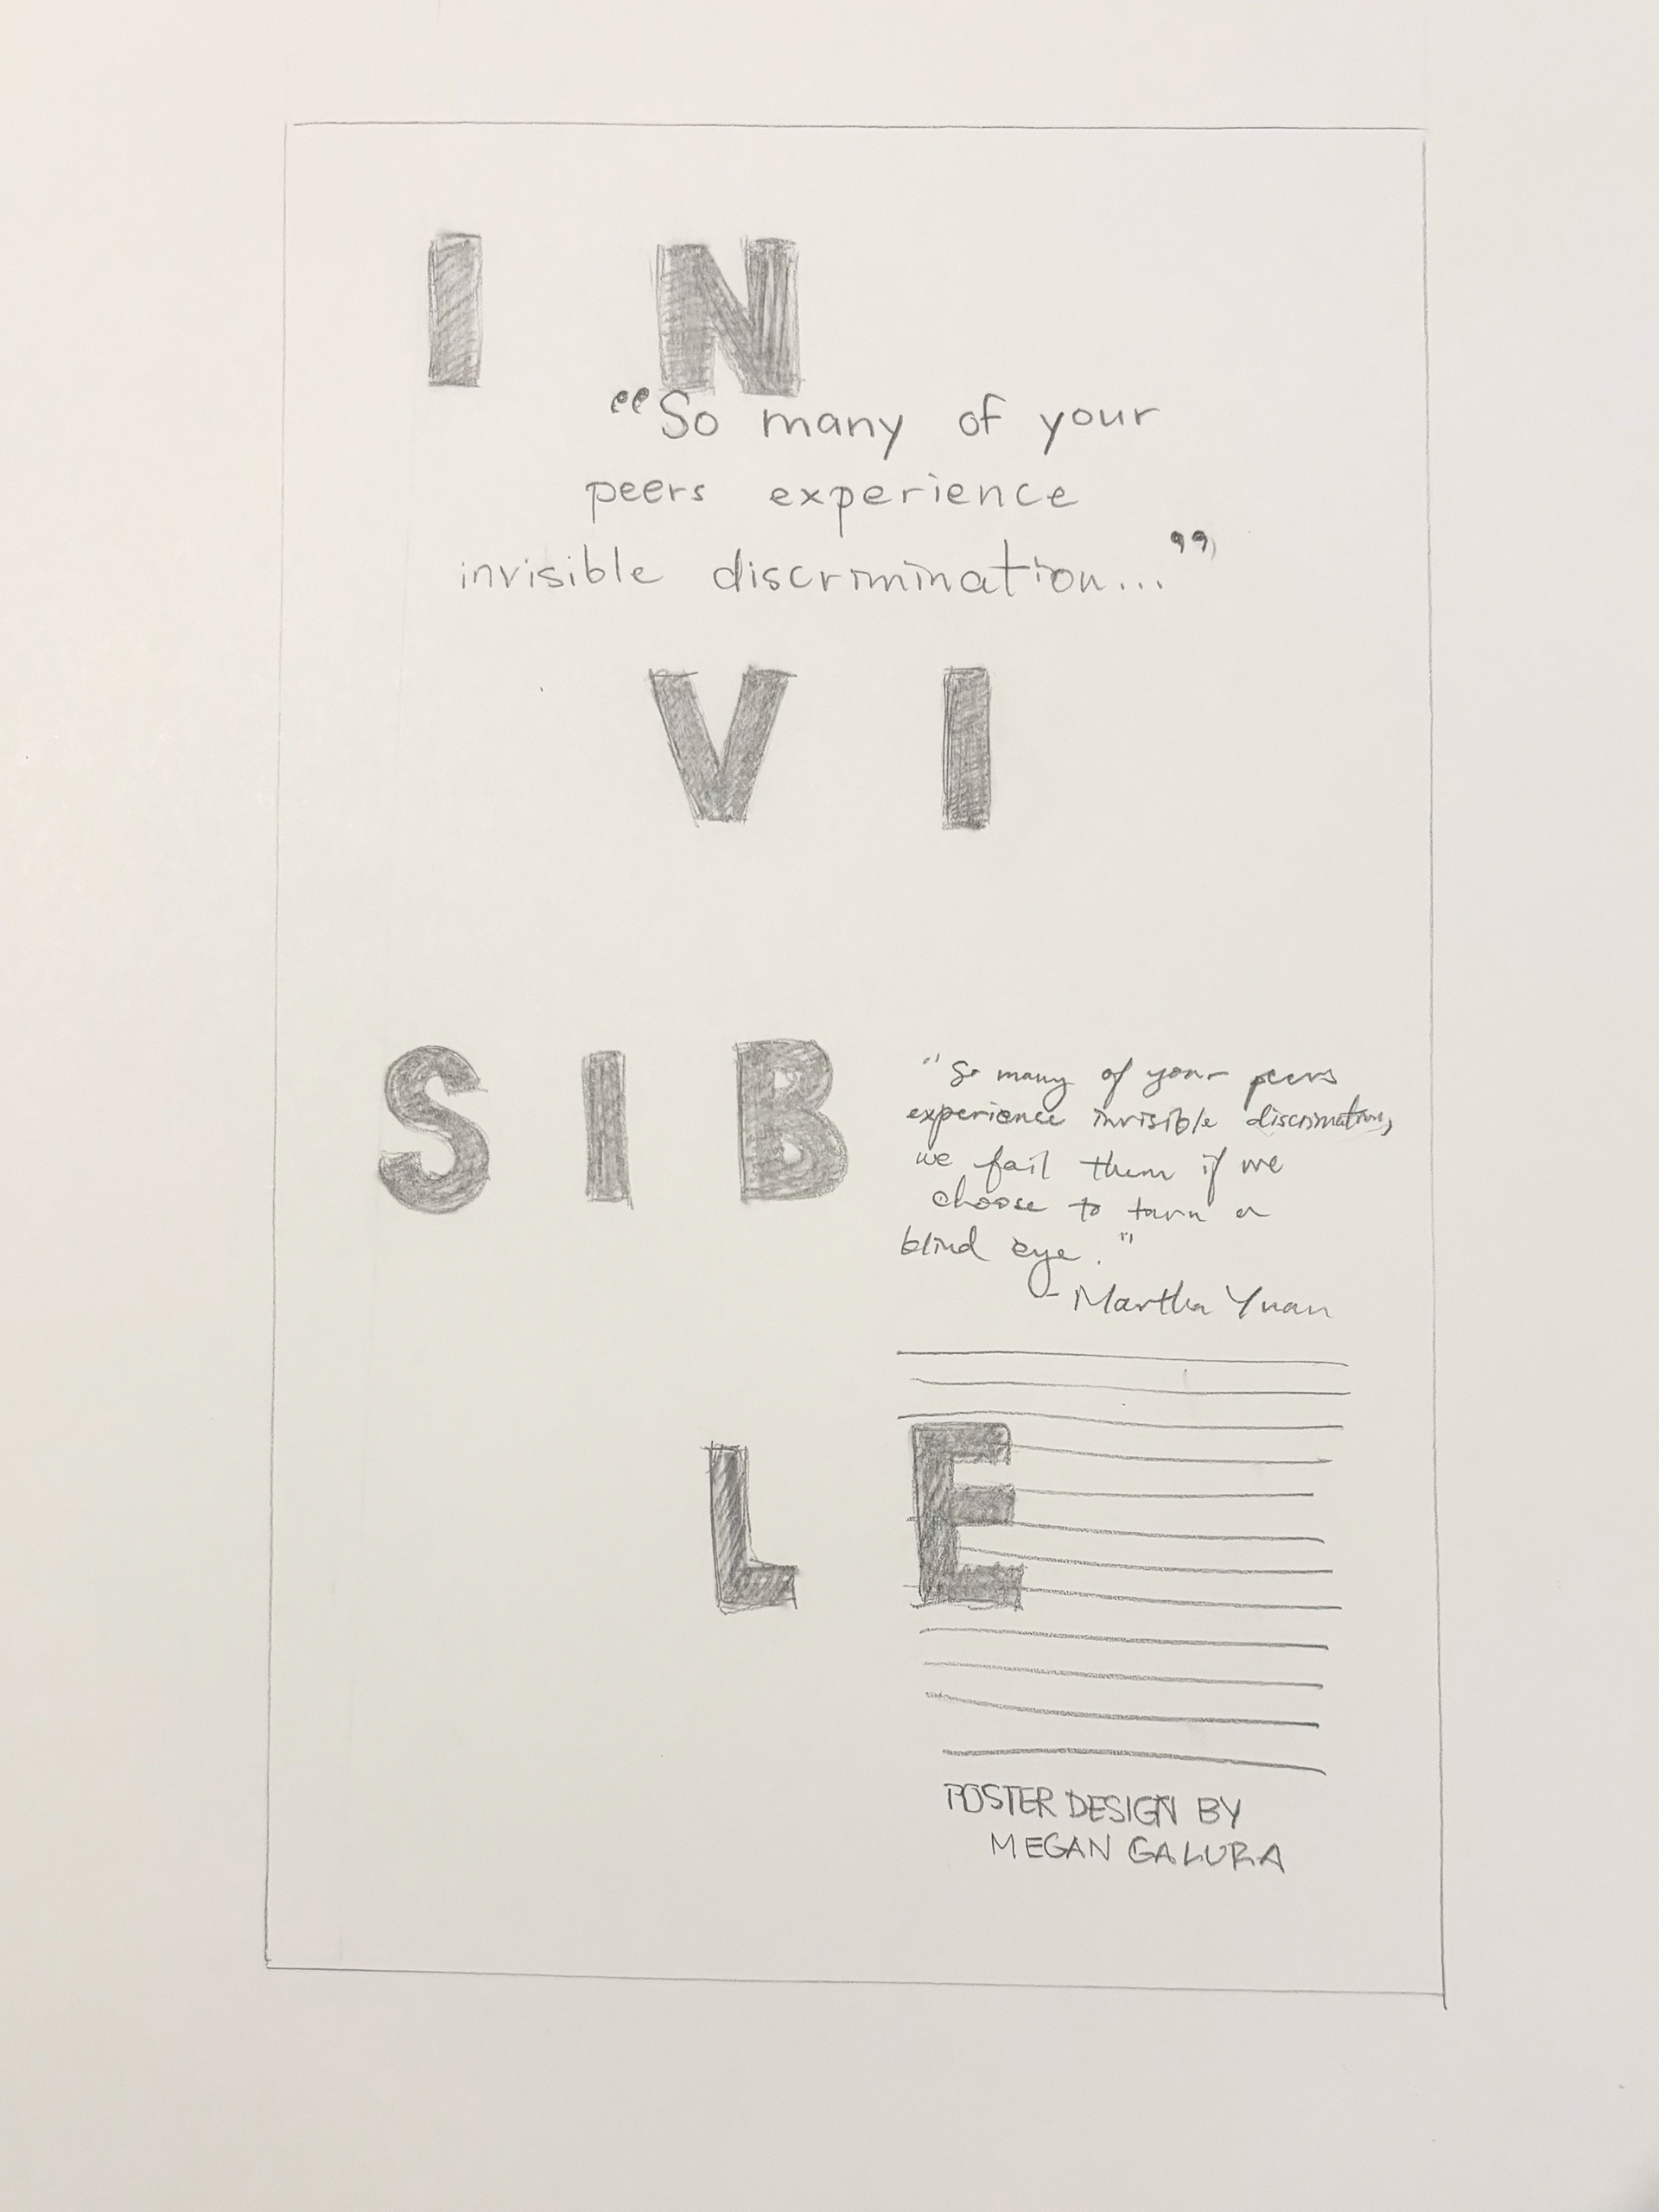 I N
“So many of your
peers experience
invisible discrimination...”
V I
S I B
"So many of your peers
experience invisible discrimination,
we fail them if we
choose to turn a
blind eye."
- Martha Yuan
L E
POSTER DESIGN BY
MEGAN GALURA